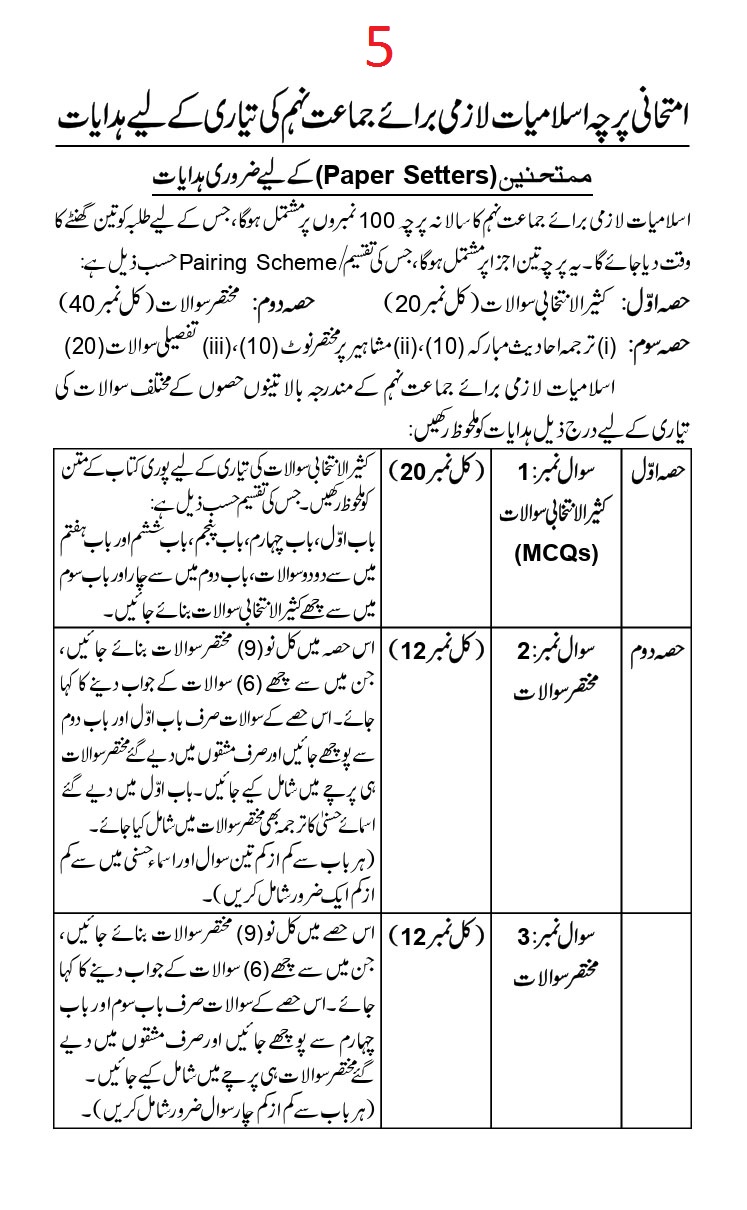 5
امتحانی پرچہ اسلامیات لازمی برائے جماعت نہم کی تیاری کے لیے ہدایات
ممتحنین (Paper Setters) کے لیے ضروری ہدایات
اسلامیات لازمی برائے جماعت نہم کا سالانہ پرچہ 100 نمبروں پر مشتمل ہوگا، جس کے لیے طلبہ کو تین گھنٹے کا
وقت دیا جائے گا۔ یہ پرچہ تین اجزا پر مشتمل ہوگا، جس کی تقسیم/Pairing Scheme حسب ذیل ہے:
حصہ اوّل: کثیر الانتخابی سوالات (کل نمبر 20) حصہ دوم: مختصر سوالات (کل نمبر 40)
حصہ سوم: (i) ترجمہ احادیث مبارکہ (10)، (ii) مشاہیر پر مختصر نوٹ (10)، (iii) تفصیلی سوالات (20)
اسلامیات لازمی برائے جماعت نہم کے مندرجہ بالا تینوں حصوں کے مختلف سوالات کی
تیاری کے لیے درج ذیل ہدایات کو ملحوظ رکھیں:
حصہ اوّل
سوال نمبر: 1
کثیر الانتخابی سوالات
(MCQs)
(کل نمبر 20)
کثیر الانتخابی سوالات کی تیاری کے لیے پوری کتاب کے متن
کو ملحوظ رکھیں۔ جس کی تقسیم حسب ذیل ہے:
باب اوّل، باب چہارم، باب پنجم، باب ششم اور باب ہفتم
میں سے دو دو سوالات، باب دوم میں سے چار اور باب سوم
میں سے چھے کثیر الانتخابی سوالات بنائے جائیں۔
حصہ دوم
سوال نمبر: 2
مختصر سوالات
(کل نمبر 12)
اس حصہ میں کل نو (9) مختصر سوالات بنائے جائیں،
جن میں سے چھے (6) سوالات کے جواب دینے کا کہا
جائے۔ اس حصے کے سوالات صرف باب اوّل اور باب دوم
سے پوچھے جائیں اور صرف مشقوں میں دیے گئے مختصر سوالات
ہی پرچے میں شامل کیے جائیں۔ باب اوّل میں دیے گئے
اسمائے حسنیٰ کا ترجمہ بھی مختصر سوالات میں شامل کیا جائے۔
(ہر باب سے کم از کم تین سوال اور اسماء حسنی میں سے کم
از کم ایک ضرور شامل کریں)۔
سوال نمبر: 3
مختصر سوالات
(کل نمبر 12)
اس حصے میں کل نو (9) مختصر سوالات بنائے جائیں،
جن میں سے چھے (6) سوالات کے جواب دینے کا کہا
جائے۔ اس حصے کے سوالات صرف باب سوم اور باب
چہارم سے پوچھے جائیں اور صرف مشقوں میں دیے
گئے مختصر سوالات ہی پرچے میں شامل کیے جائیں۔
(ہر باب سے کم از کم چار سوال ضرور شامل کریں)۔